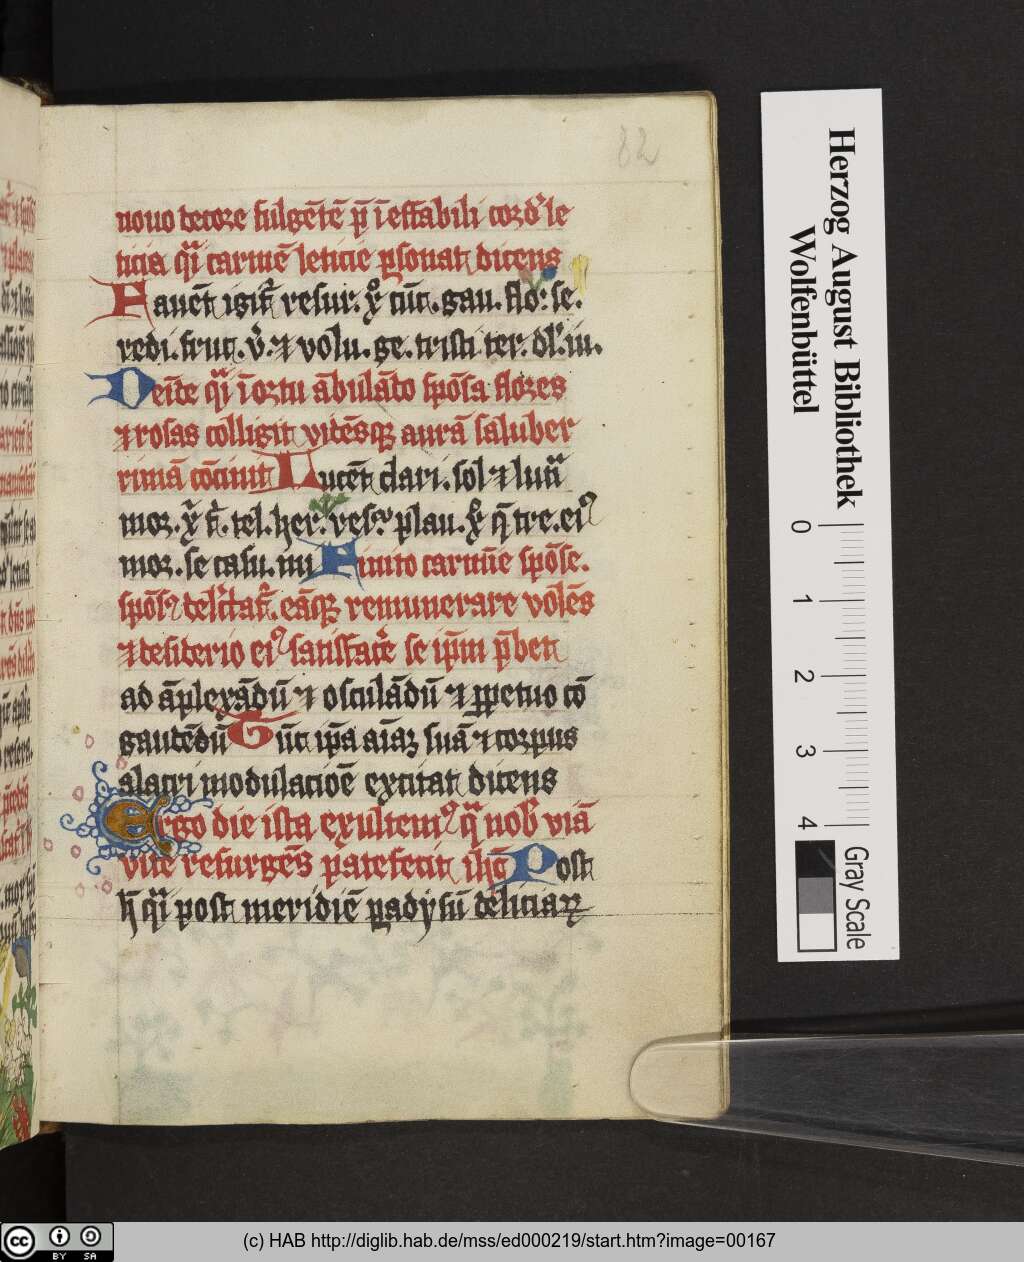 82
nouo decore fulgētē p̄ ī effabili cord' le
ticia qͣi carmē leticie ꝑsonat dicens
Fauēt igit᷑ resur. xͦ cūc. gau. flo: se.
redi. fruc. v̓. ⁊ volu. ge. tristi ter. dl'. iu.
Deīde qͣi ī ortu ābulādo spōsa flores
⁊ rosas colligit vidēsqꝫ aurā saluber
rimā cōcinit Lucēt clari. sol ⁊ lun̄
mor. xͦ t̓. tel. her. ves. plau. xͦ q̄ tre. ei⁹
mor. se casu. mi Finito carmīe spōse.
spōs⁹ delc̄tat᷑. eāqꝫ remunerare volēs
⁊ desiderio ei⁹ satisfac̄e se ip̄m p̄bet
ad āplexādū ⁊ osculādū ⁊ ꝑpetuo cō
gaudēdū Tūc ip̄a aīaꝫ suā ⁊ corpus
alacri modulacioē excitat dicens
Ergo die ista exultem⁹ qͣ nob̄ viā
vite resurgēs patefecit ihc̄ Post
h̄ qͣi post meridiē ꝑadysū deliciaꝝ
Herzog August Bibliothek
Wolfenbüttel
0 1 2 3 4
Gray Scale
cc BY SA
(c) HAB http://diglib.hab.de/mss/ed000219/start.htm?image=00167